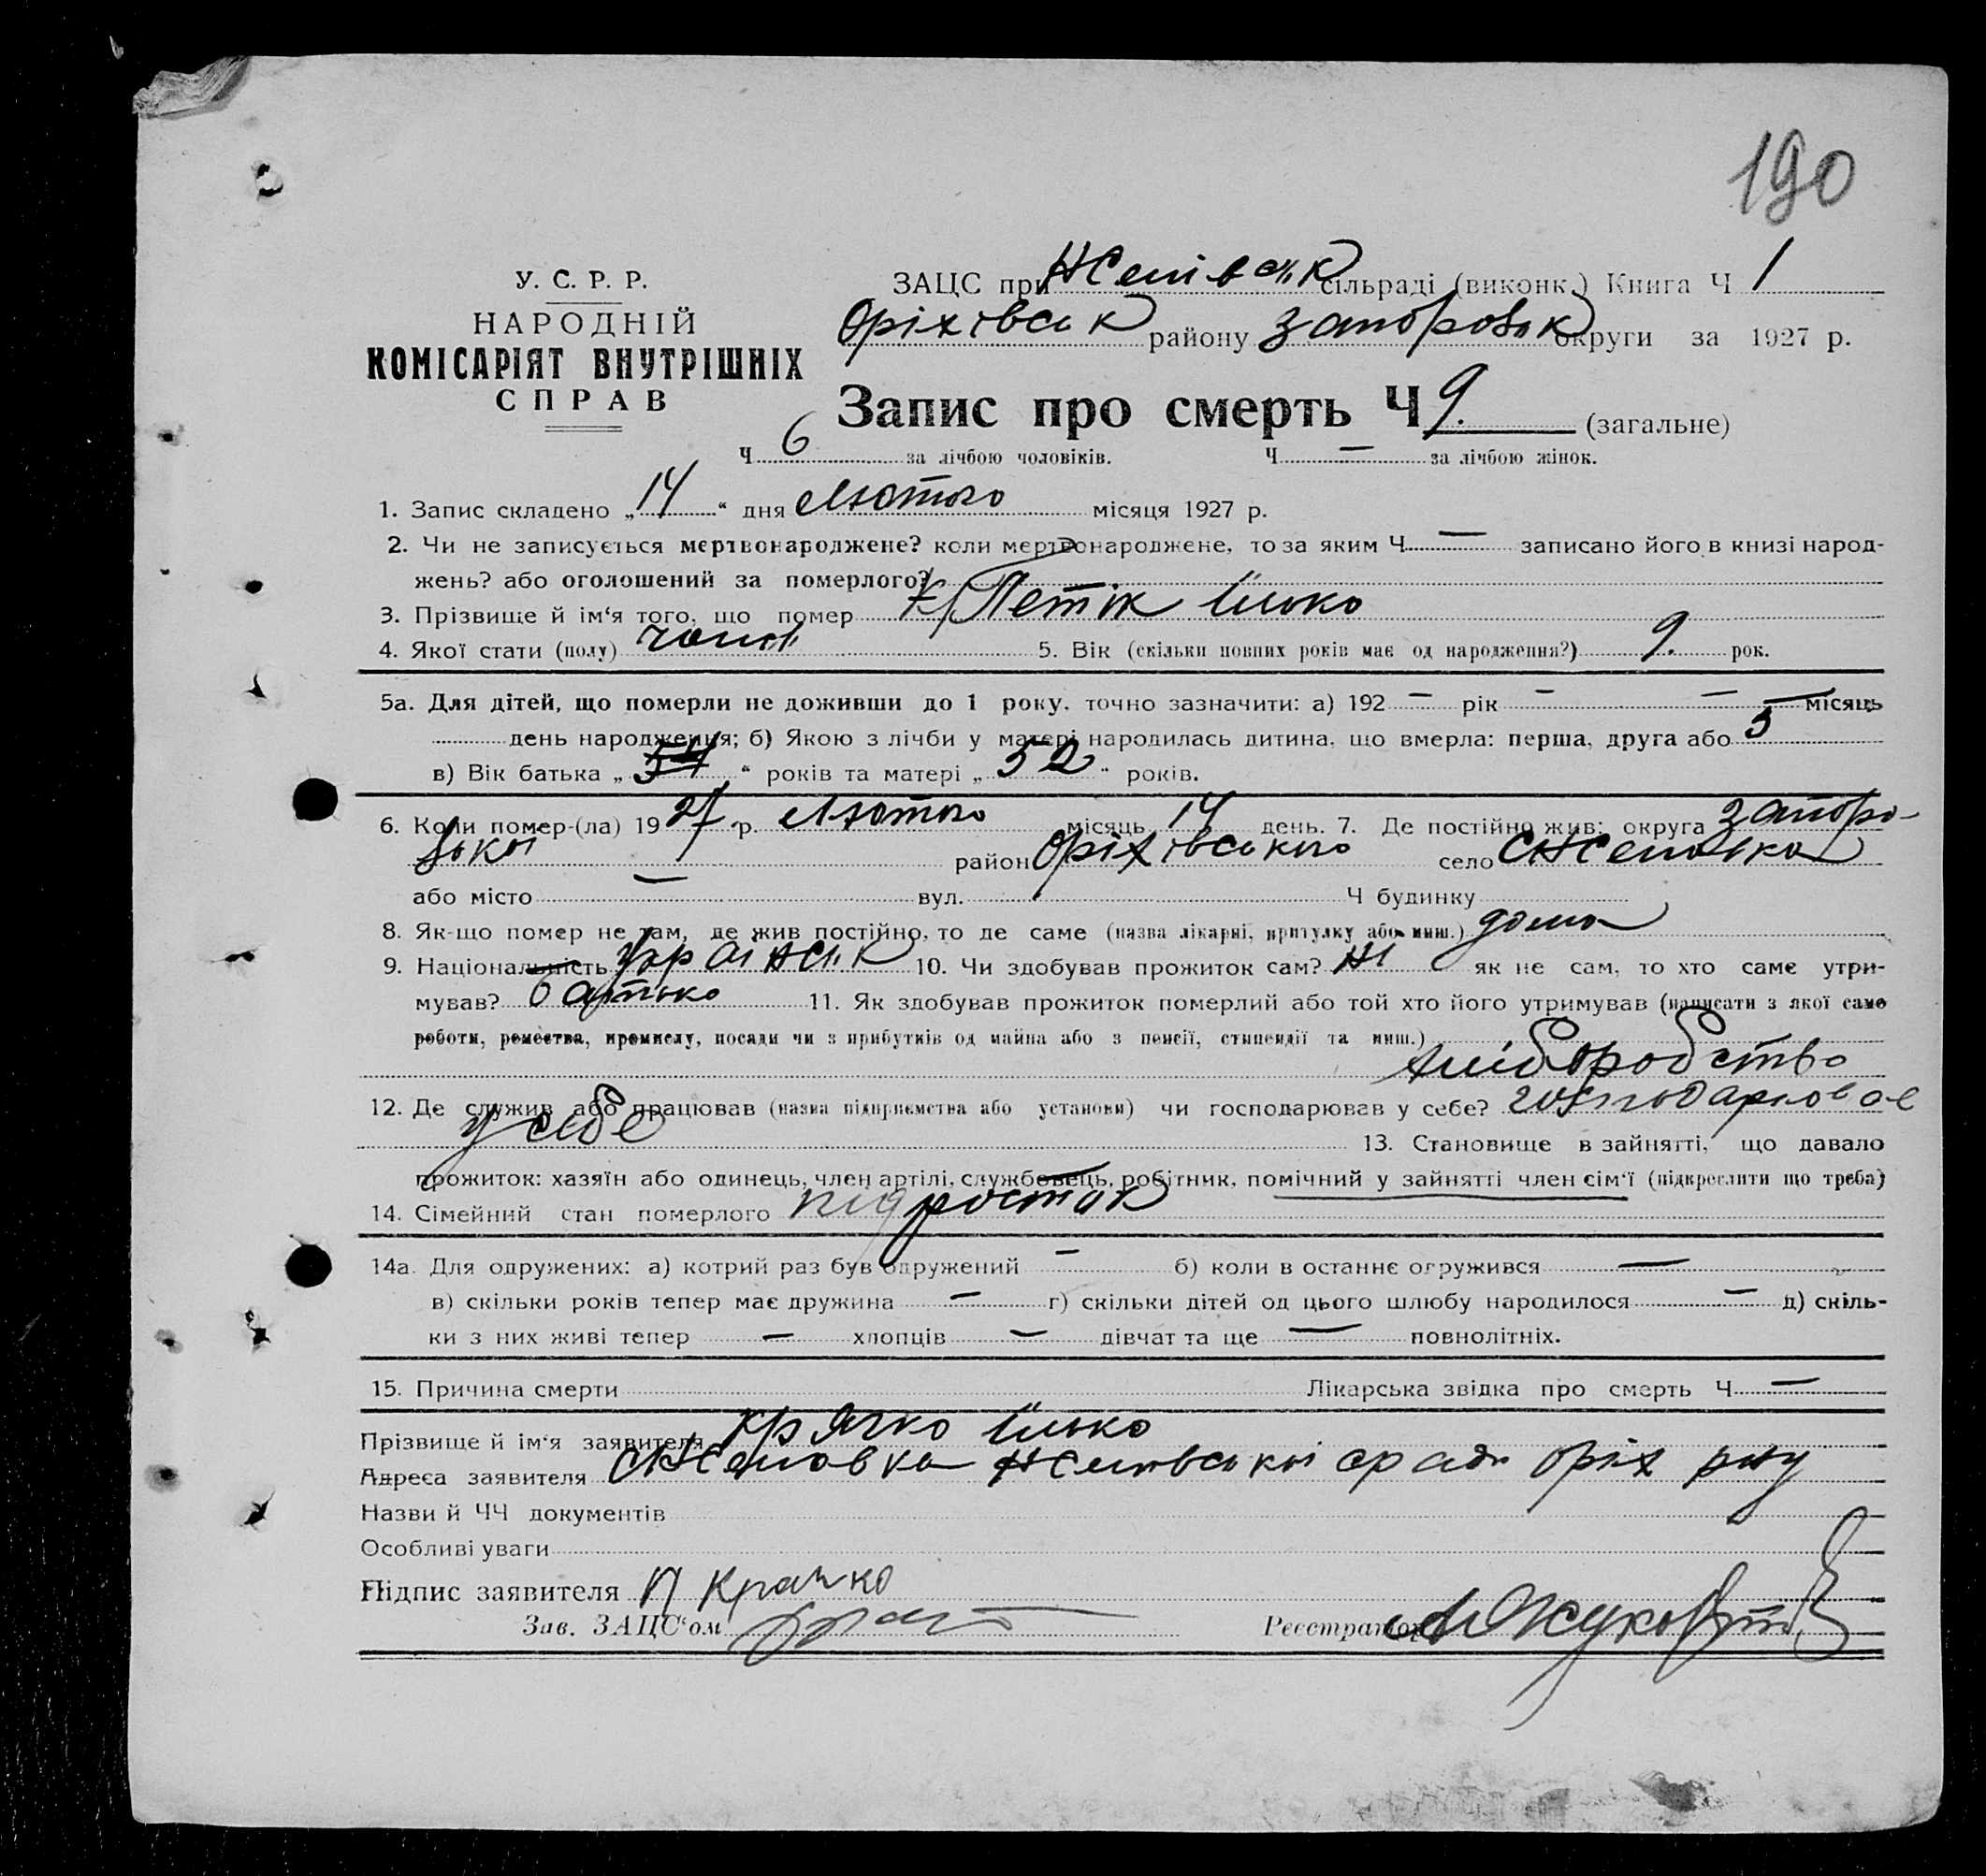 190
У. С. Р. Р.
НАРОДНІЙ
КОМІСАРІЯТ ВНУТРІШНІХ
СПРАВ
ЗАЦС при сільраді (виконк.) Книга Ч 1
Оріхівськ району Запорозьк округи за 1927 р.
Запис про смерть Ч 9. (загальне)
Ч 6 за лічбою чоловіків. Ч — за лічбою жінок.
1. Запис складено „14“ дня Лютого місяця 1927 р.
2. Чи не записується мертвонароджене? коли мертвонароджене, то за яким Ч — записано його в книзі народ-
жень? або оголошений за померлого?
3. Прізвище й ім‘я того, що помер Ілько
4. Якої стати (полу) чолов 5. Вік (скільки повних років має од народження?) 9. рок.
5а. Для дітей, що померли не доживши до 1 року. точно зазначити: а) 192 — рік — — місяць
день народження; б) Якою з лічби у матері народилась дитина, що вмерла: перша, друга або 5
в) Вік батька „54“ років та матері „52“ років.
6. Коли помер-(ла) 1927 р. Лютого місяць 14 день. 7. Де постійно жив: округа Запоро-
зької район Оріхівського село
або місто — вул. Ч будинку
8. Як-що помер не там, де жив постійно, то де саме (назва лікарні, притулку або инш.) дома
9. Національність Українськ 10. Чи здобував прожиток сам? Ні як не сам, то хто саме утри-
мував? батько 11. Як здобував прожиток померлий або той хто його утримував (написати з якої само
роботи, ремества, промислу, посади чи з прибутків од майна або з пенсії, стипендії та инш.)
хліборобство
12. Де служив або працював (назва підприємства або установи) чи господарював у себе?
у себе 13. Становище в зайнятті, що давало
прожиток: хазяїн або одинець, член артілі, службовець, робітник, помічний у зайнятті член сім‘ї (підкреслити що треба)
14. Сімейний стан померлого підросток
14а. Для одружених: а) котрий раз був одружений — б) коли в останнє одружився —
в) скільки років тепер має дружина — г) скільки дітей од цього шлюбу народилося — д) скіль-
ки з них живі тепер — хлопців — дівчат та ще — повнолітніх.
15. Причина смерти Лікарська звідка про смерть Ч —
Прізвище й ім‘я заявителя Крячко Ілько
Адреса заявителя Оріх р-ну
Назви й ЧЧ документів
Особливі уваги
Підпис заявителя
Зав. ЗАЦС‘ом Реєстратор